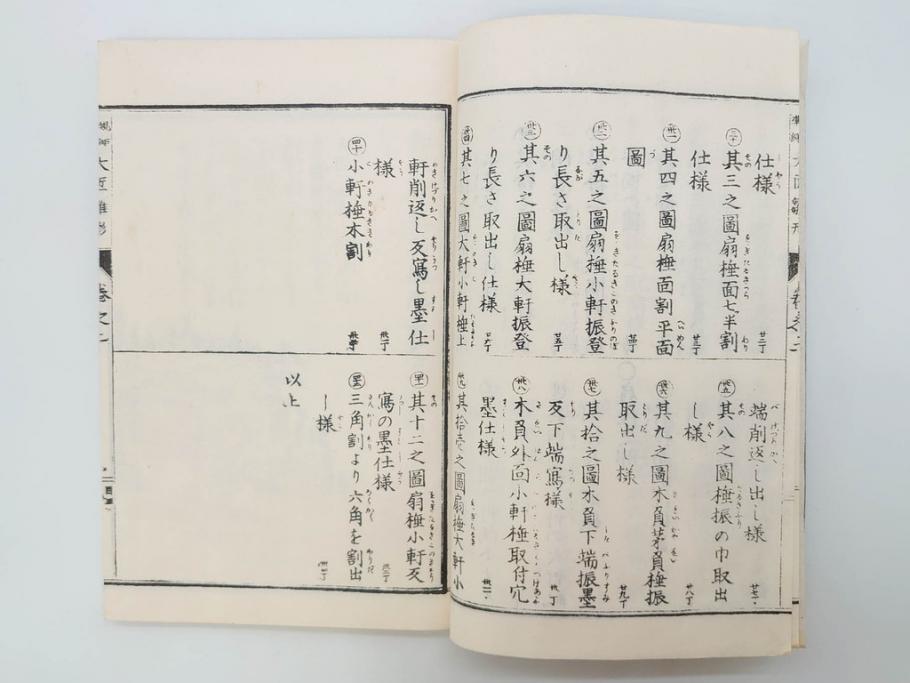 仕様 廿二丁
三十 其三之圖扇棰面七半割
仕様 廿三丁
卅一 其四之圖扇棰面割平面
圖 廿四丁
卅二 其五之圖扇棰小軒振登
り長さ取出し様 廿五丁
卅三 其六之圖扇棰大軒振登
り長さ取出し仕様
其七之圖大軒小軒棰上
端削返し出し様 廿七丁
卅五 其八之圖棰振の巾取出
し様 廿八丁
卅六 其九之圖木負茅負棰振
取出し様 廿九丁
卅七 其拾之圖木負下端振墨
及下端寫様 卅丁
卅八 木負外面小軒棰取付穴
墨仕様
卅九 其拾壱之圖扇棰大軒小
軒削返し及寫し墨仕
様
四十 小軒棰木割
其十二之圖扇棰小軒及
寫の墨仕様
三角割より六角を割出
し様
以上
大匠雛形
卷之二